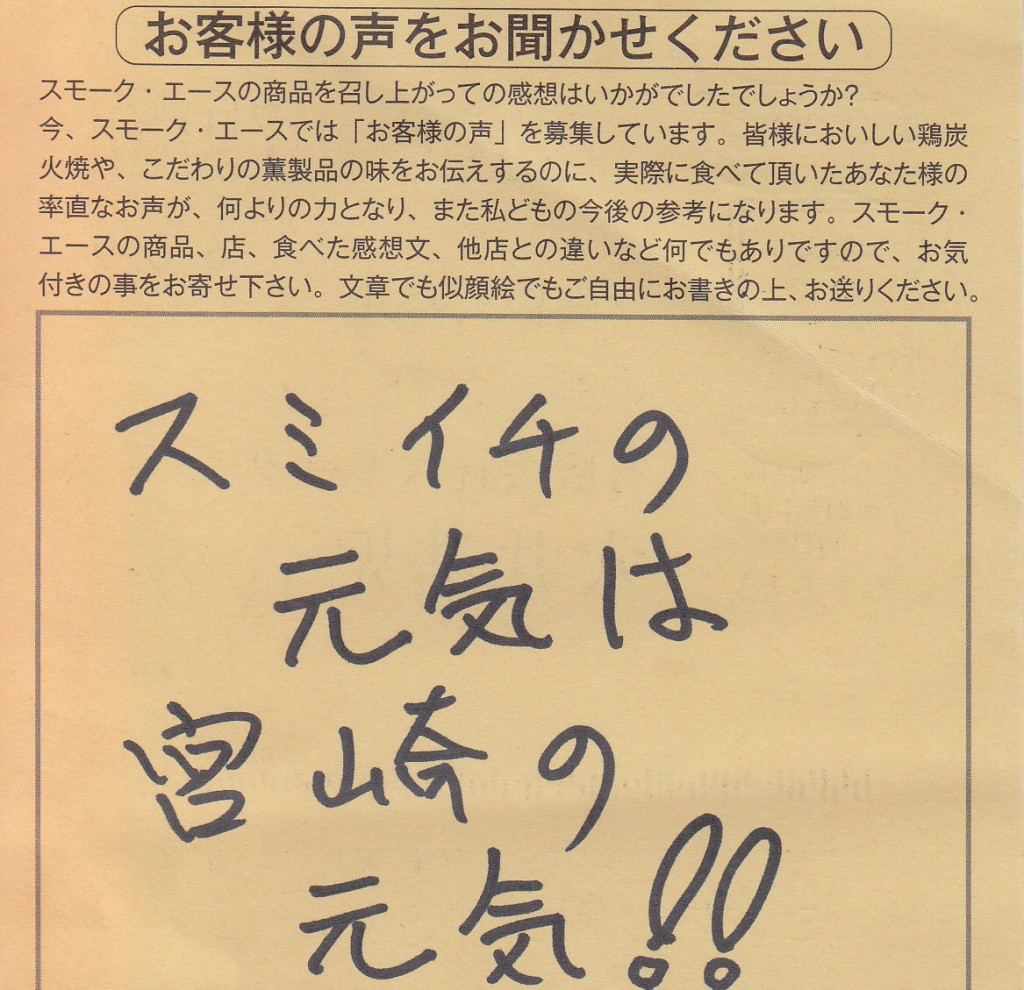 お客様の声をお聞かせください
スモーク・エースの商品を召し上がっての感想はいかがでしたでしょうか?
今、スモーク・エースでは「お客様の声」を募集しています。皆様においしい鶏炭
火焼や、こだわりの薫製品の味をお伝えするのに、実際に食べて頂いたあなた様の
率直なお声が、何よりの力となり、また私どもの今後の参考になります。スモーク・
エースの商品、店、食べた感想文、他店との違いなど何でもありですので、お気
付きの事をお寄せ下さい。文章でも似顔絵でもご自由にお書きの上、お送りください。
スミイチの
元気は
宮崎の
元気!!